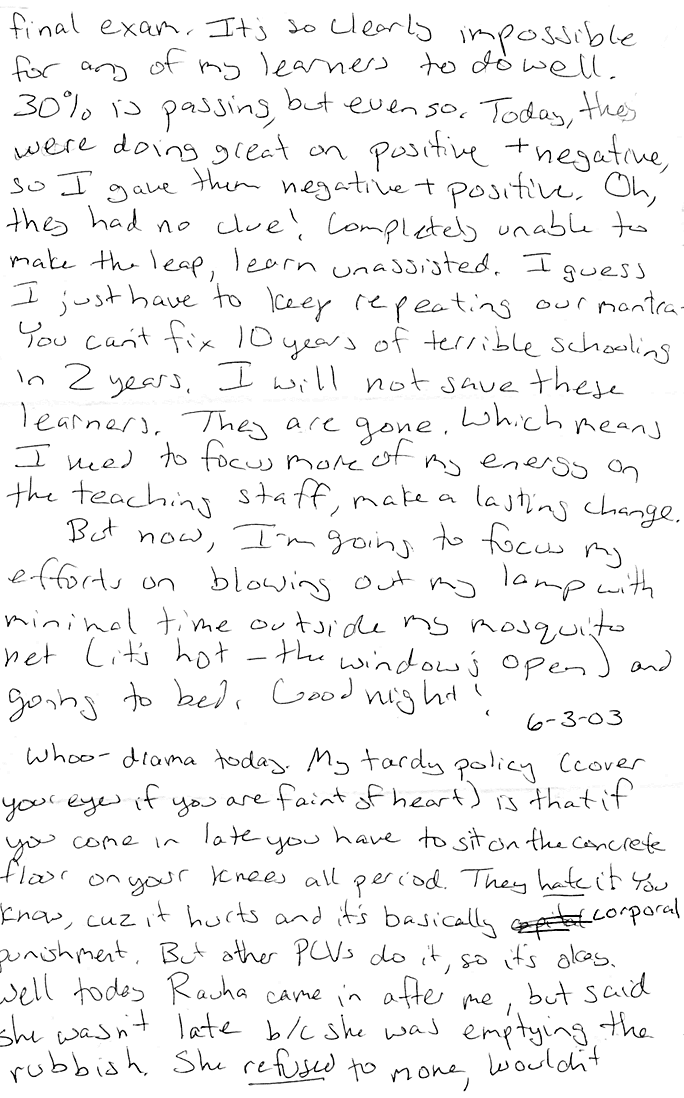 final exam. It's so clearly impossible
for any of my learners to do well.
30% is passing, but even so. Today, they
were doing great on positive + negative,
so I gave them negative + positive. Oh,
they had no clue! Completely unable to
make the leap, learn unassisted. I guess
I just have to keep repeating our mantra-
You can't fix 10 years of terrible schooling
in 2 years. I will not save these
learners. They are gone. Which means
I need to focus more of my energy on
the teaching staff, make a lasting change.
But now, I'm going to focus my
efforts on blowing out my lamp with
minimal time outside my mosquito
net (it's hot - the window's open) and
going to bed. Good night!
6-3-03
Whoo- drama today. My tardy policy (cover
your eyes if you are faint of heart) is that if
you come in late you have to sit on the concrete
floor on your knees all period. They hate it you
know, cuz it hurts and it's basically capital corporal
punishment. But other PCVs do it, so it's okay.
Well today Rauha came in after me, but said
she wasn't late b/c she was emptying the
rubbish. She refused to move, wouldn't